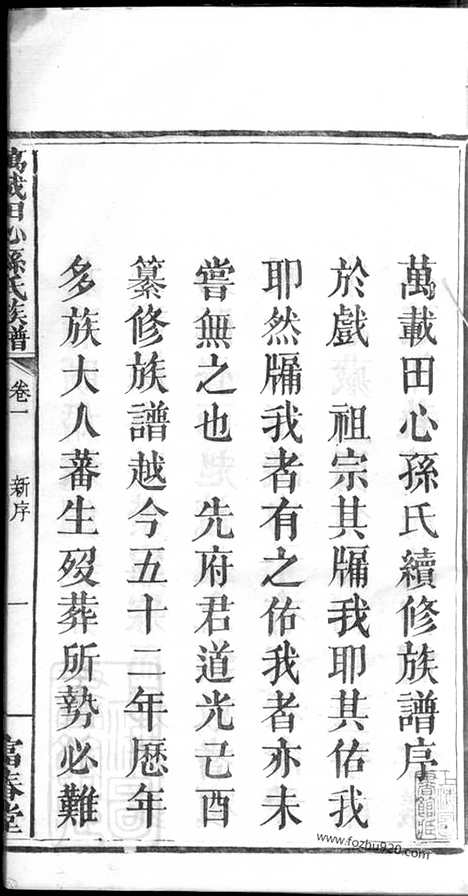 萬載田心孫氏續修族譜序
於戲　祖宗其牖我耶其佑我
耶然牖我者有之佑我者亦未
嘗無之也　先府君道光己酉
纂修族譜越今五十二年歷年
多族大人蕃生歿葬所勢必難
萬載田心孫氏族譜
卷一
新序
一
富春堂
www.fozhu920.com